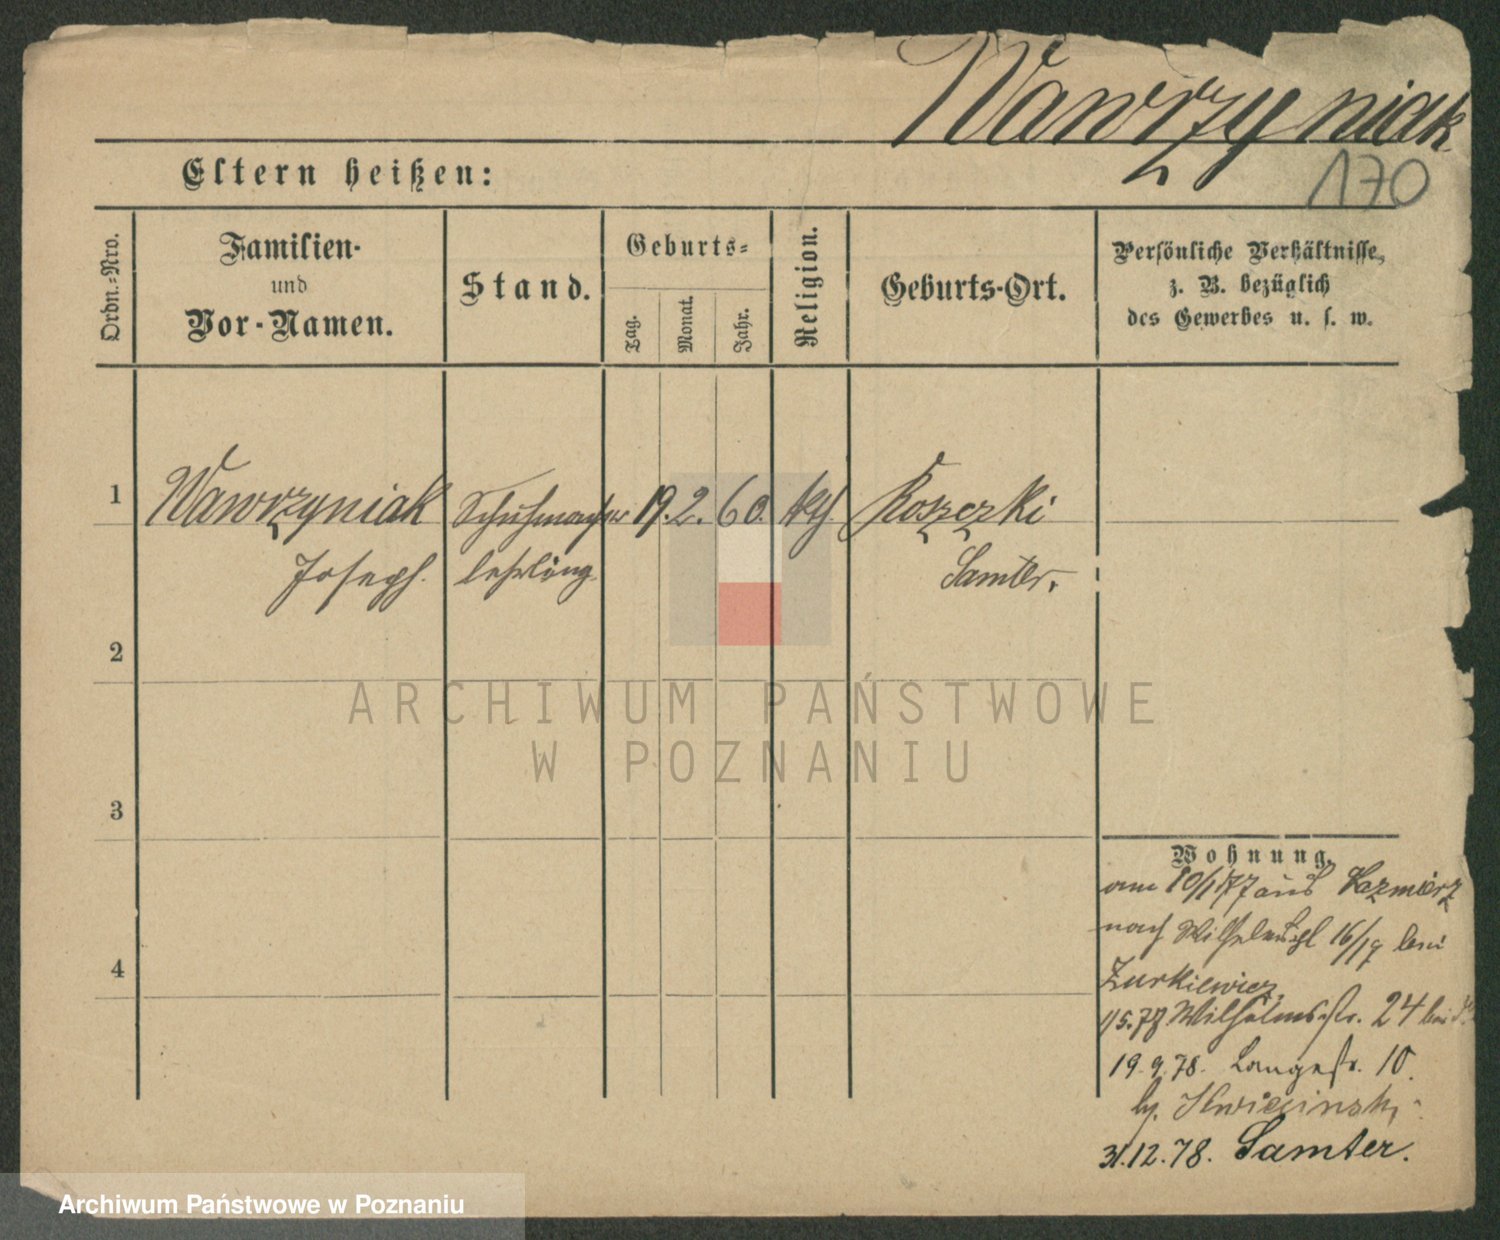 Wawrzyniak
170
Eltern heißen:
Ordn.-Nro.
Familien-
und
Vor-Namen.
Stand.
Geburts-
Tag.
Monat.
Jahr.
Religion.
Geburts-Ort.
Persönliche Verhältnisse,
z. B. bezüglich
des Gewerbes u. s. w.
1 Wawrzyniak Schuhmacher 19. 2. 60. kth. Koszczki
Joseph. lehrling Samter.
2
3
4
ARCHIWUM PAŃSTWOWE
W POZNANIU
Wohnung.
am 10/1 77 aus Kazmierz
nach Wilhelmspl 16/17 bei
Zurkiewicz
1/5.78 Wilhelmsstr. 24 bei
19.9.78. Langestr. 10.
31.12.78. Samter.
Archiwum Państwowe w Poznaniu